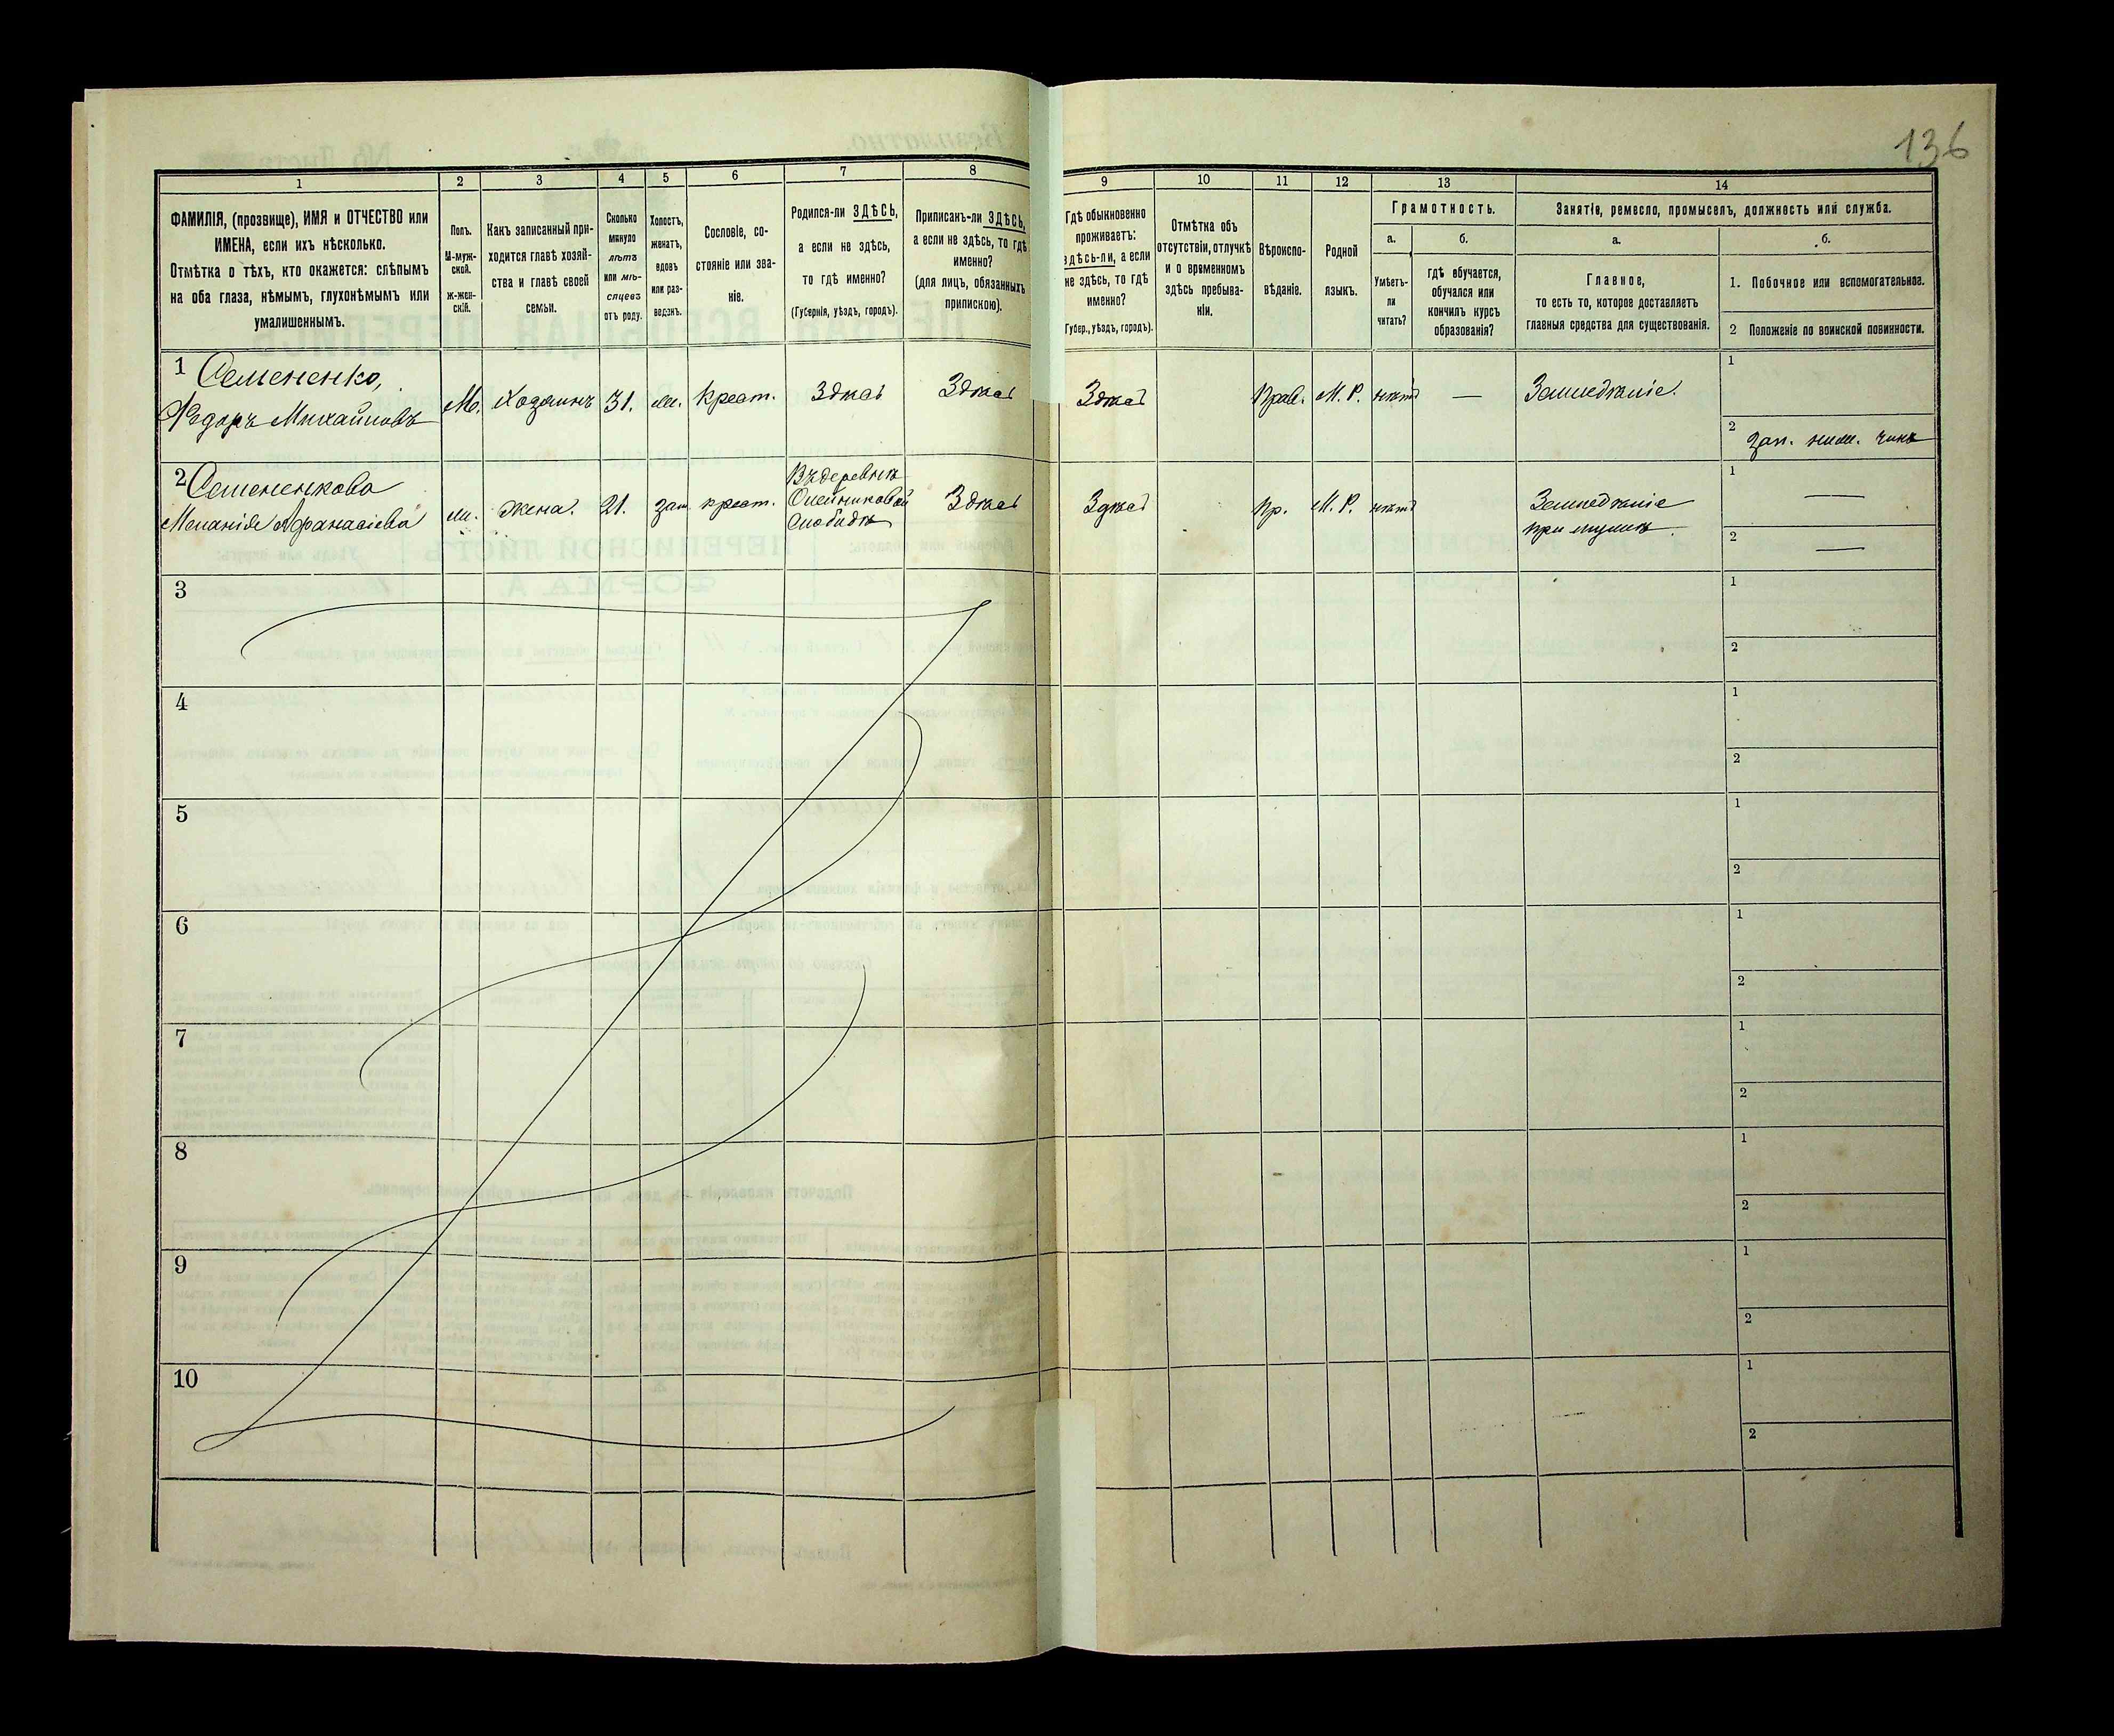 136
1 2 3 4 5 6 7 8 9 10 11 12 13 14
ФАМИЛІЯ, (прозвище), ИМЯ и ОТЧЕСТВО или
ИМЕНА, если ихъ нѣсколько.
Отмѣтка о тѣхъ, кто окажется: слѣпымъ
на оба глаза, нѣмымъ, глухонѣмымъ или
умалишеннымъ.
Полъ.
М-муж-
ской.
ж-жен-
скій.
Какъ записанный при-
ходится главѣ хозяй-
ства и главѣ своей
семьи.
Сколько
минуло
лѣтъ
или мѣ-
сяцевъ
отъ роду.
Холостъ,
женатъ,
вдовъ
или раз-
веденъ.
Сословіе, со-
стояніе или зва-
ніе.
Родился-ли ЗДѢСЬ,
а если не здѣсь,
то гдѣ именно?
(Губернія, уѣздъ, городъ).
Приписанъ-ли ЗДѢСЬ,
а если не здѣсь, то гдѣ
именно?
(для лицъ, обязанныхъ
припискою).
Гдѣ обыкновенно
проживаетъ:
здѣсь-ли, а если
не здѣсь, то гдѣ
именно?
Губер., уѣздъ, городъ).
Отмѣтка объ
отсутствіи, отлучкѣ
и о временномъ
здѣсь пребыва-
ніи.
Вѣроиспо-
вѣданіе.
Родной
языкъ.
Грамотность.
а.
Умѣетъ-
ли
читать?
б.
гдѣ обучается,
обучался или
кончилъ курсъ
образованія?
Занятіе, ремесло, промыселъ, должность или служба.
а.
Главное,
то есть то, которое доставляетъ
главныя средства для существованія.
б.
1. Побочное или вспомогательное.
2 Положеніе по воинской повинности.
1 Семененко,
Ѳедоръ Михайловъ
М. Хозяинъ 31. ж. крест. Здѣсь Здѣсь Здѣсь Прав. М. Р. нѣтъ — Земледѣліе.
1
2 зап. ниж. чинъ
2 Семененкова
Меланія Афанасіева
ж. жена. 21. зам. крест.
Въ деревнѣ
Олейниковой
Слободѣ
Здѣсь Здѣсь Пр. М. Р. нѣтъ
Земледѣліе
при мужѣ.
1 —
2 —
3
1
2
4
1
2
5
1
2
6
1
2
7
1
2
8
1
2
9
1
2
10
1
2